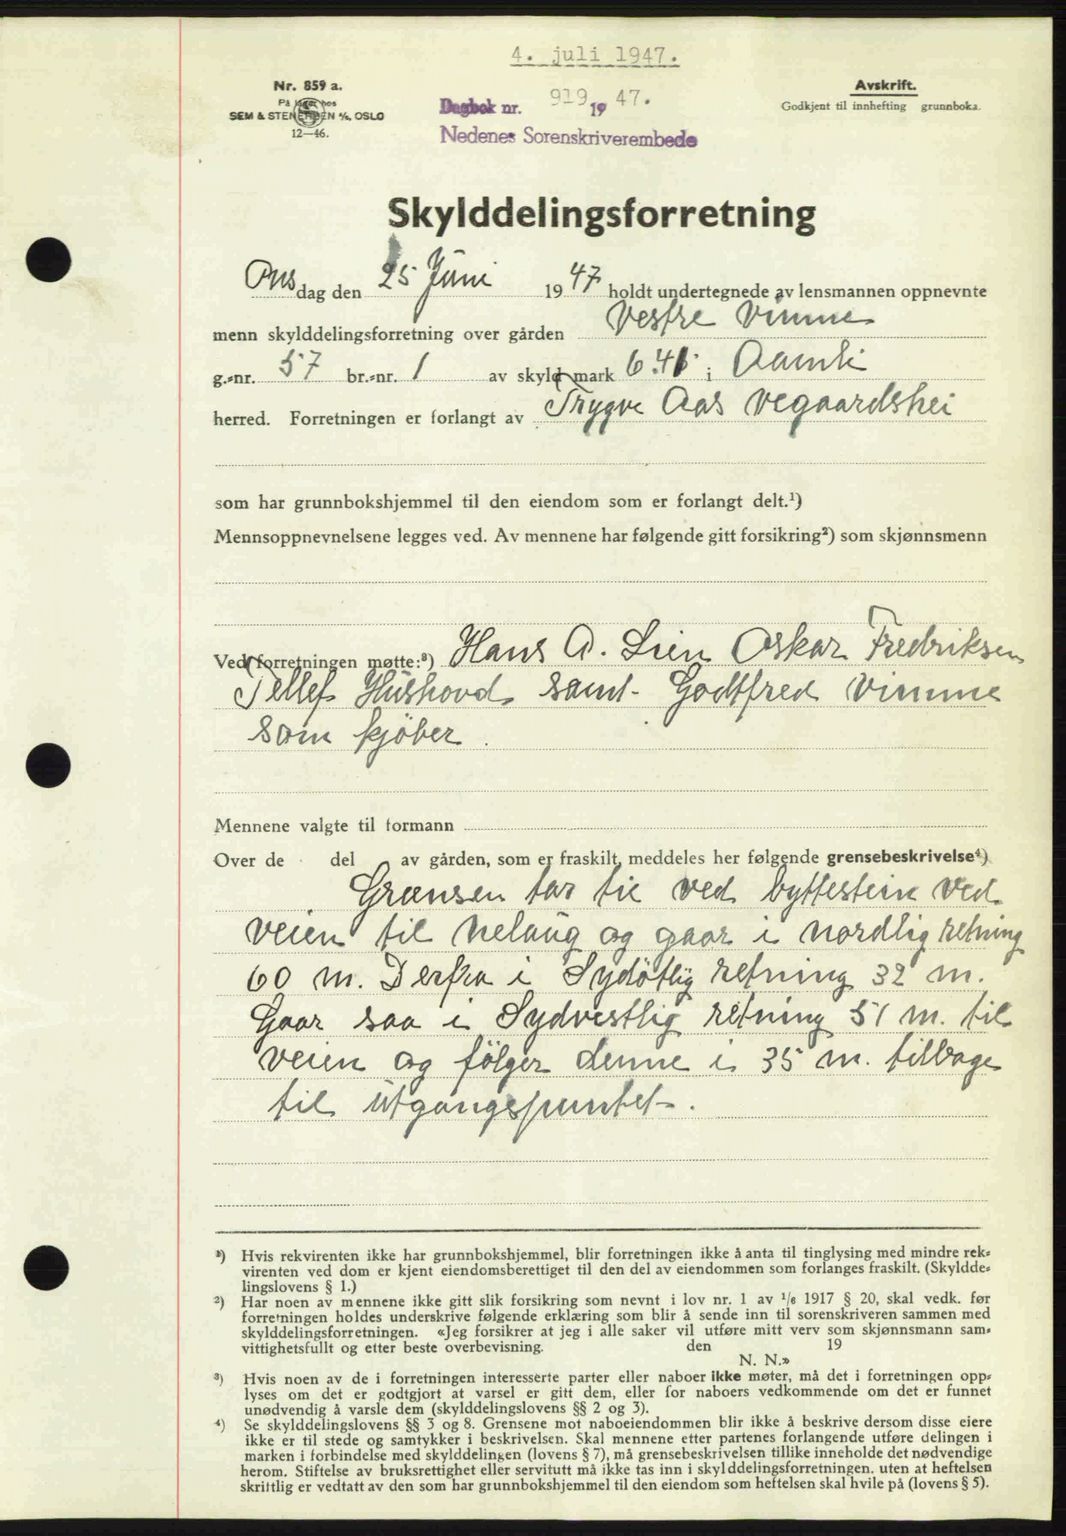 4. juli 1947.
Nr. 859 a.
På lager hos
SEM & STENERSEN A/S, OSLO
12—46.
Dagbok nr. 919 19 47.
Nedenes Sorenskriverembede
Avskrift.
Godkjent til innhefting grunnboka.
Skylddelingsforretning
Onsdag den 25 Juni 1947 holdt undertegnede av lensmannen oppnevnte
menn skylddelingsforretning over gården Vestre Vimme
g.-nr. 57 br.-nr. 1 av skyld mark 6.41 i Aamli
herred. Forretningen er forlangt av Trygve Aas Vegaardshei
som har grunnbokshjemmel til den eiendom som er forlangt delt.¹)
Mennsoppnevnelsene legges ved. Av mennene har følgende gitt forsikring²) som skjønnsmenn
Ved forretningen møtte:³) Hans A. Lien Oskar Fredriksen
Tellef Hushovd samt Godtfred Vimme
som kjöber.
Mennene valgte til formann
Over de del av gården, som er fraskilt, meddeles her følgende grensebeskrivelse⁴)
Grænsen tar til ved byttestein ved
veien til Nelaug og gaar i nordlig retning
60 m. Derfra i Sydötlig retning 32 m.
Gaar saa i Sydvestlig retning 51 m. til
veien og fölger denne i 35 m. tilbage
til utgangspuntet.
¹) Hvis rekvirenten ikke har grunnbokshjemmel, blir forretningen ikke å anta til tinglysing med mindre rek-
virenten ved dom er kjent eiendomsberettiget til den del av eiendommen som forlanges fraskilt. (Skyldde-
lingslovens § 1.)
²) Har noen av mennene ikke gitt slik forsikring som nevnt i lov nr. 1 av ¹/₆ 1917 § 20, skal vedk. før
forretningen holdes underskrive følgende erklæring som blir å sende inn til sorenskriveren sammen med
skylddelingsforretningen. «Jeg forsikrer at jeg i alle saker vil utføre mitt verv som skjønnsmann sam-
vittighetsfullt og etter beste overbevisning. den 19
N. N.»
³) Hvis noen av de i forretningen interesserte parter eller naboer ikke møter, må det i forretningen opp-
lyses om det er godtgjort at varsel er gitt dem, eller for naboers vedkommende om det er funnet
unødvendig å varsle dem (skylddelingslovens §§ 2 og 3).
⁴) Se skylddelingslovens §§ 3 og 8. Grensene mot naboeiendommen blir ikke å beskrive dersom disse eiere
ikke er til stede og samtykker i beskrivelsen. Skal mennene etter partenes forlangende utføre delingen i
marken i forbindelse med skylddelingen (lovens § 7), må grensebeskrivelsen tillike inneholde det nødvendige
herom. Stiftelse av bruksrettighet eller servitutt må ikke tas inn i skylddelingsforretningen, uten at heftelsen
skriftlig er vedtatt av den som har grunnbokshjemmel til den eiendom som heftelsen skal hvile på (lovens § 5).